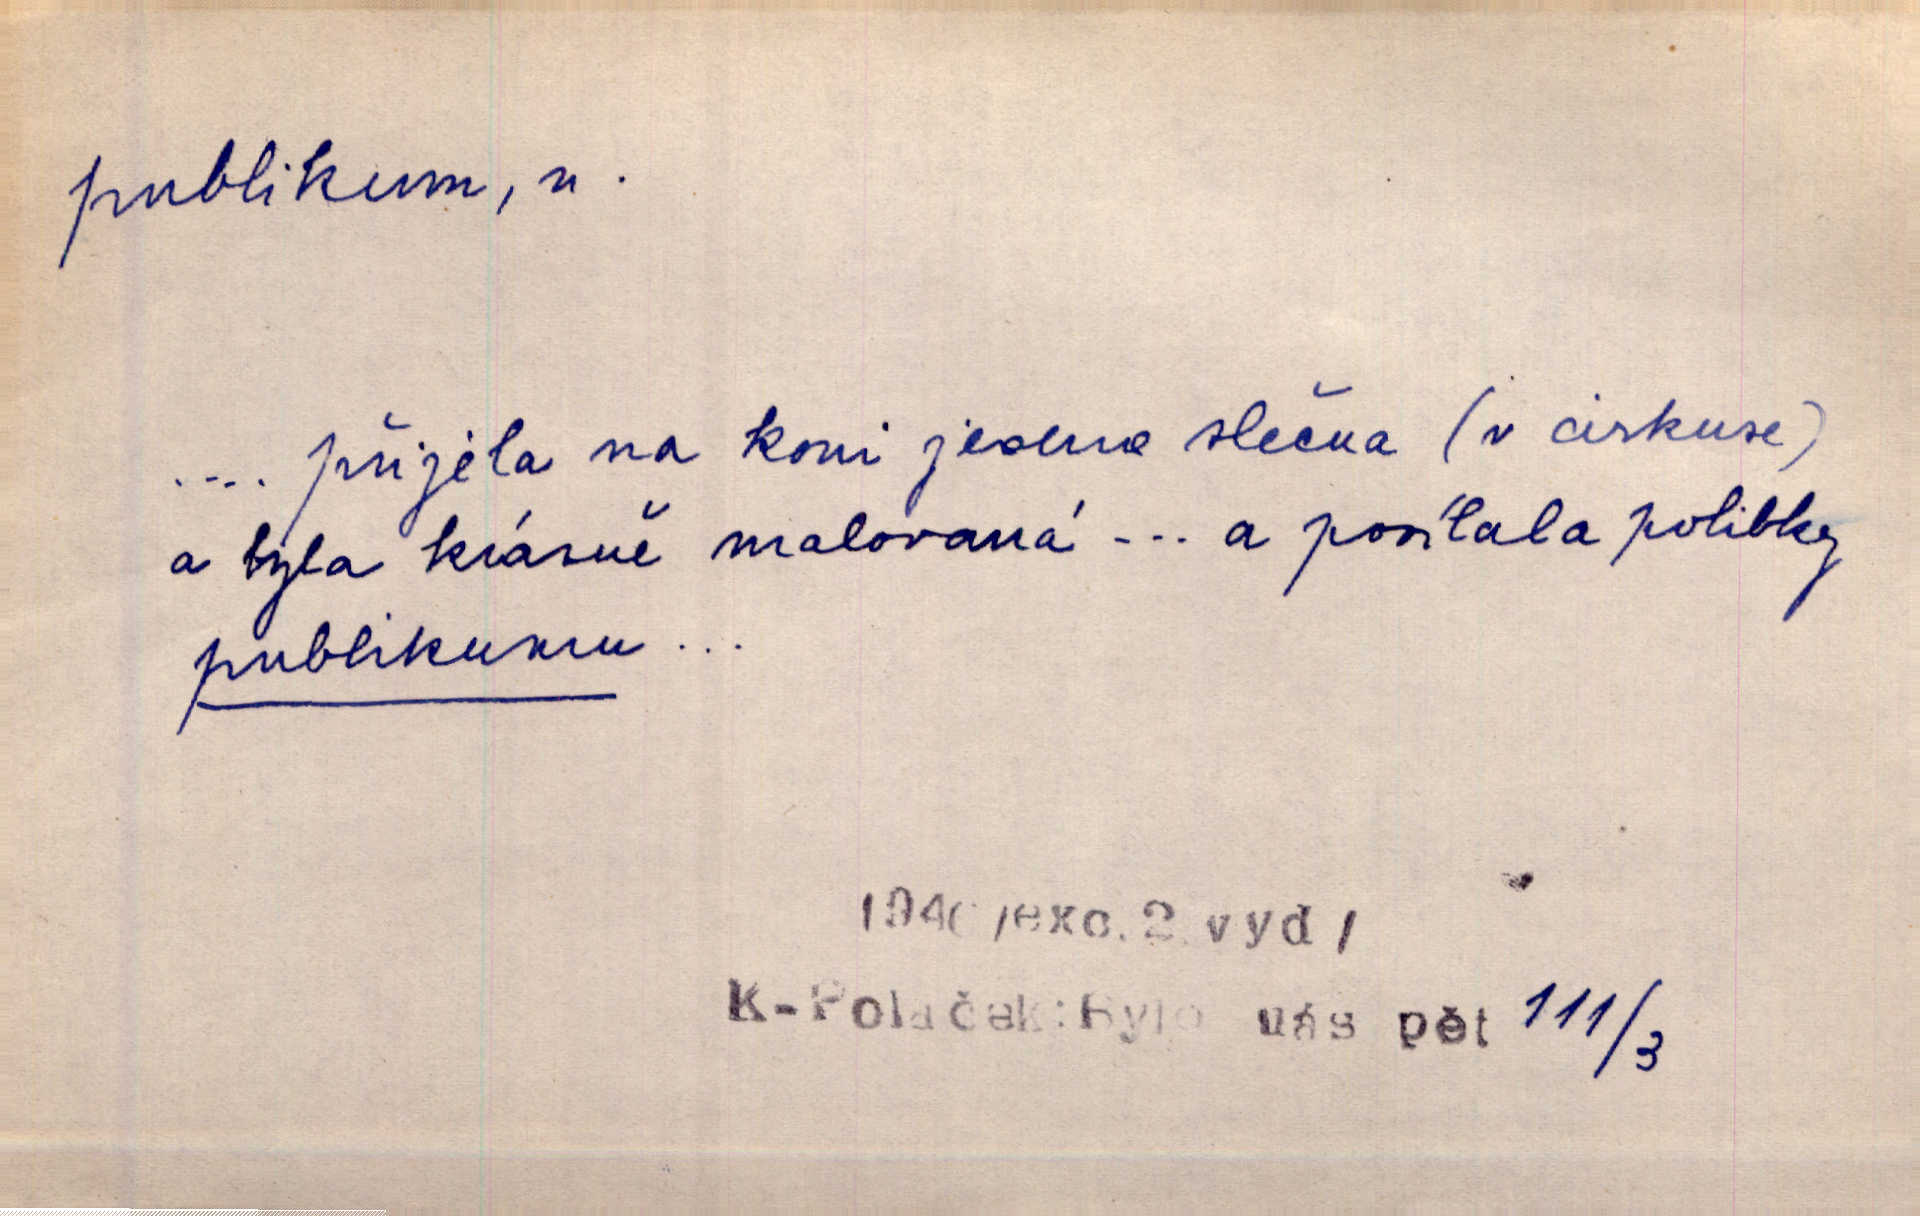 publikum, n.
.... přijela na koni jedna slečna (v cirkuse)
a byla krásně malovaná --- a posílala polibky
publikumu ...
/exc. 2. vyd/
K-Poláček: Bylo nás pět 111/3